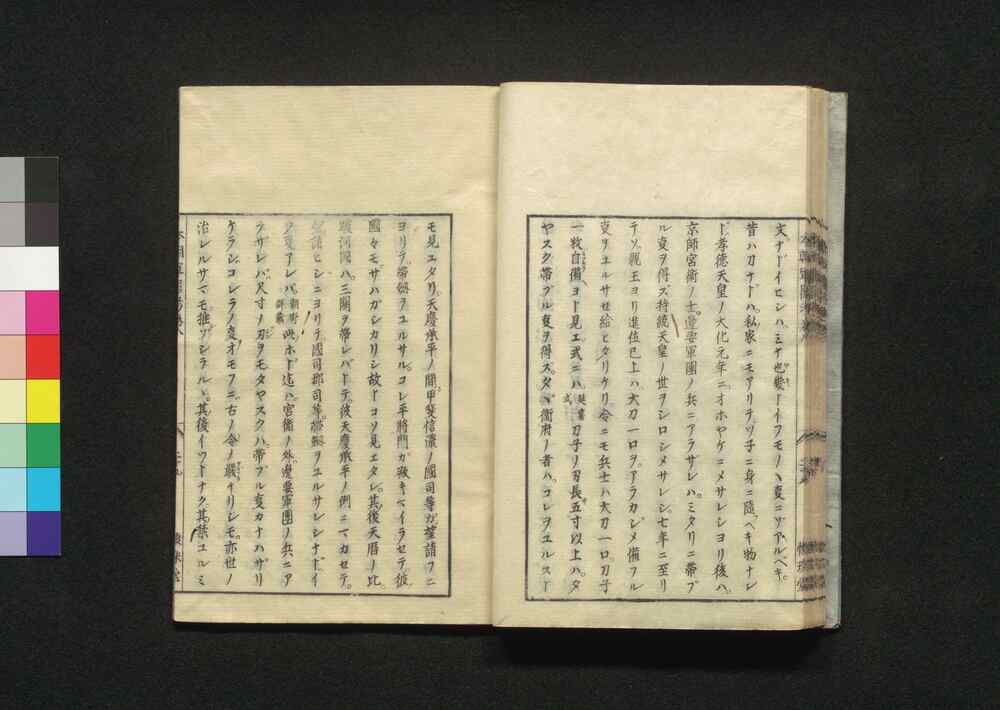 文ナドイヒシハミナ也製トイフモノヽ事ニゾアルベキ
昔ハ刀ナドハ私家ニモアリテツ子ニ身ニ随ヘキ物ナレ
ド孝徳天皇ノ大化元年ニオホヤケニメサレシヨリ後ハ
京師宮衛ノ士邊要軍團ノ兵ニアラザレハミタリニ帯ブ
ル事ヲ得ズ持統天皇ノ世ヲシロシメサレシ七年ニ至リ
テソ親王ヨリ進位已上ハ大刀一口ヲアラカジメ備フル
事ヲユルサセ給ヒタリケリ令ニモ兵士ハ大刀一口刀子
一枚自備ヨト見エ式ニハ刀子ノ刃長五寸以上ハタ
ヤスク帯ブル事ヲ得ズタヾ衛府ノ者ハコレヲユルスト
モ見エタリ天慶承平ノ間甲斐信濃ノ國司等ガ望請フニ
ヨリテ帯劔ヲユルサルコレ平將門カ敗キヘイラセテ彼
國々モサハガシカリシ故トコソ見エタレ其後天暦ノ比
駿河國ハ三關ヲ帯レバトテ彼天慶承平ノ例ニマカセテ
望請ヒシニヨリテ國司郡司等帯劔ヲユルサレシナドイ
フ事アレバ此ホド迄ハ宮衛ノ外邊要軍團ノ兵ニア
ラサレハ尺寸ノ刃ヲモタヤスクハ帯ブル事カナハザリ
ケラシコレラノ事オモフニ古ノ令ノ嚴ナリシモ亦世ノ
治レルサマモ推ゾシラルヽ其後イツトナク其禁ユルミ